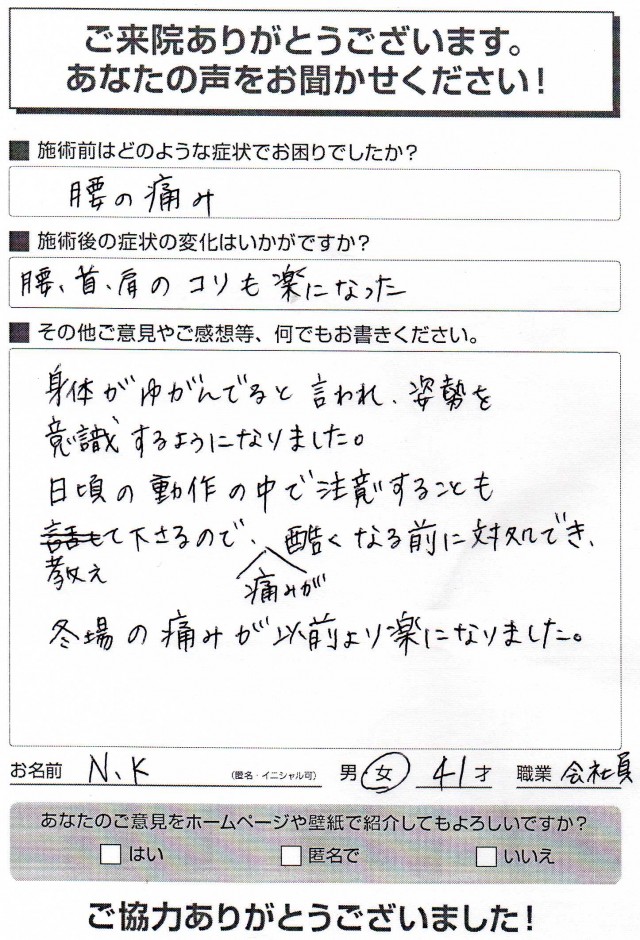 ご来院ありがとうございます。
あなたの声をお聞かせください！
■ 施術前はどのような症状でお困りでしたか？
腰の痛み
■ 施術後の症状の変化はいかがですか？
腰、首、肩のコリも楽になった
■ その他ご意見やご感想等、何でもお書きください。
身体がゆがんでると言われ、姿勢を
意識するようになりました。
日頃の動作の中で注意することも
話して下さるので、酷くなる前に対処でき、
教え 痛みが
冬場の痛みが以前より楽になりました。
お名前 N、K (匿名・イニシャル可) 男 女 41才 職業 会社員
あなたのご意見をホームページや壁紙で紹介してもよろしいですか？
□ はい □ 匿名で □ いいえ
ご協力ありがとうございました！